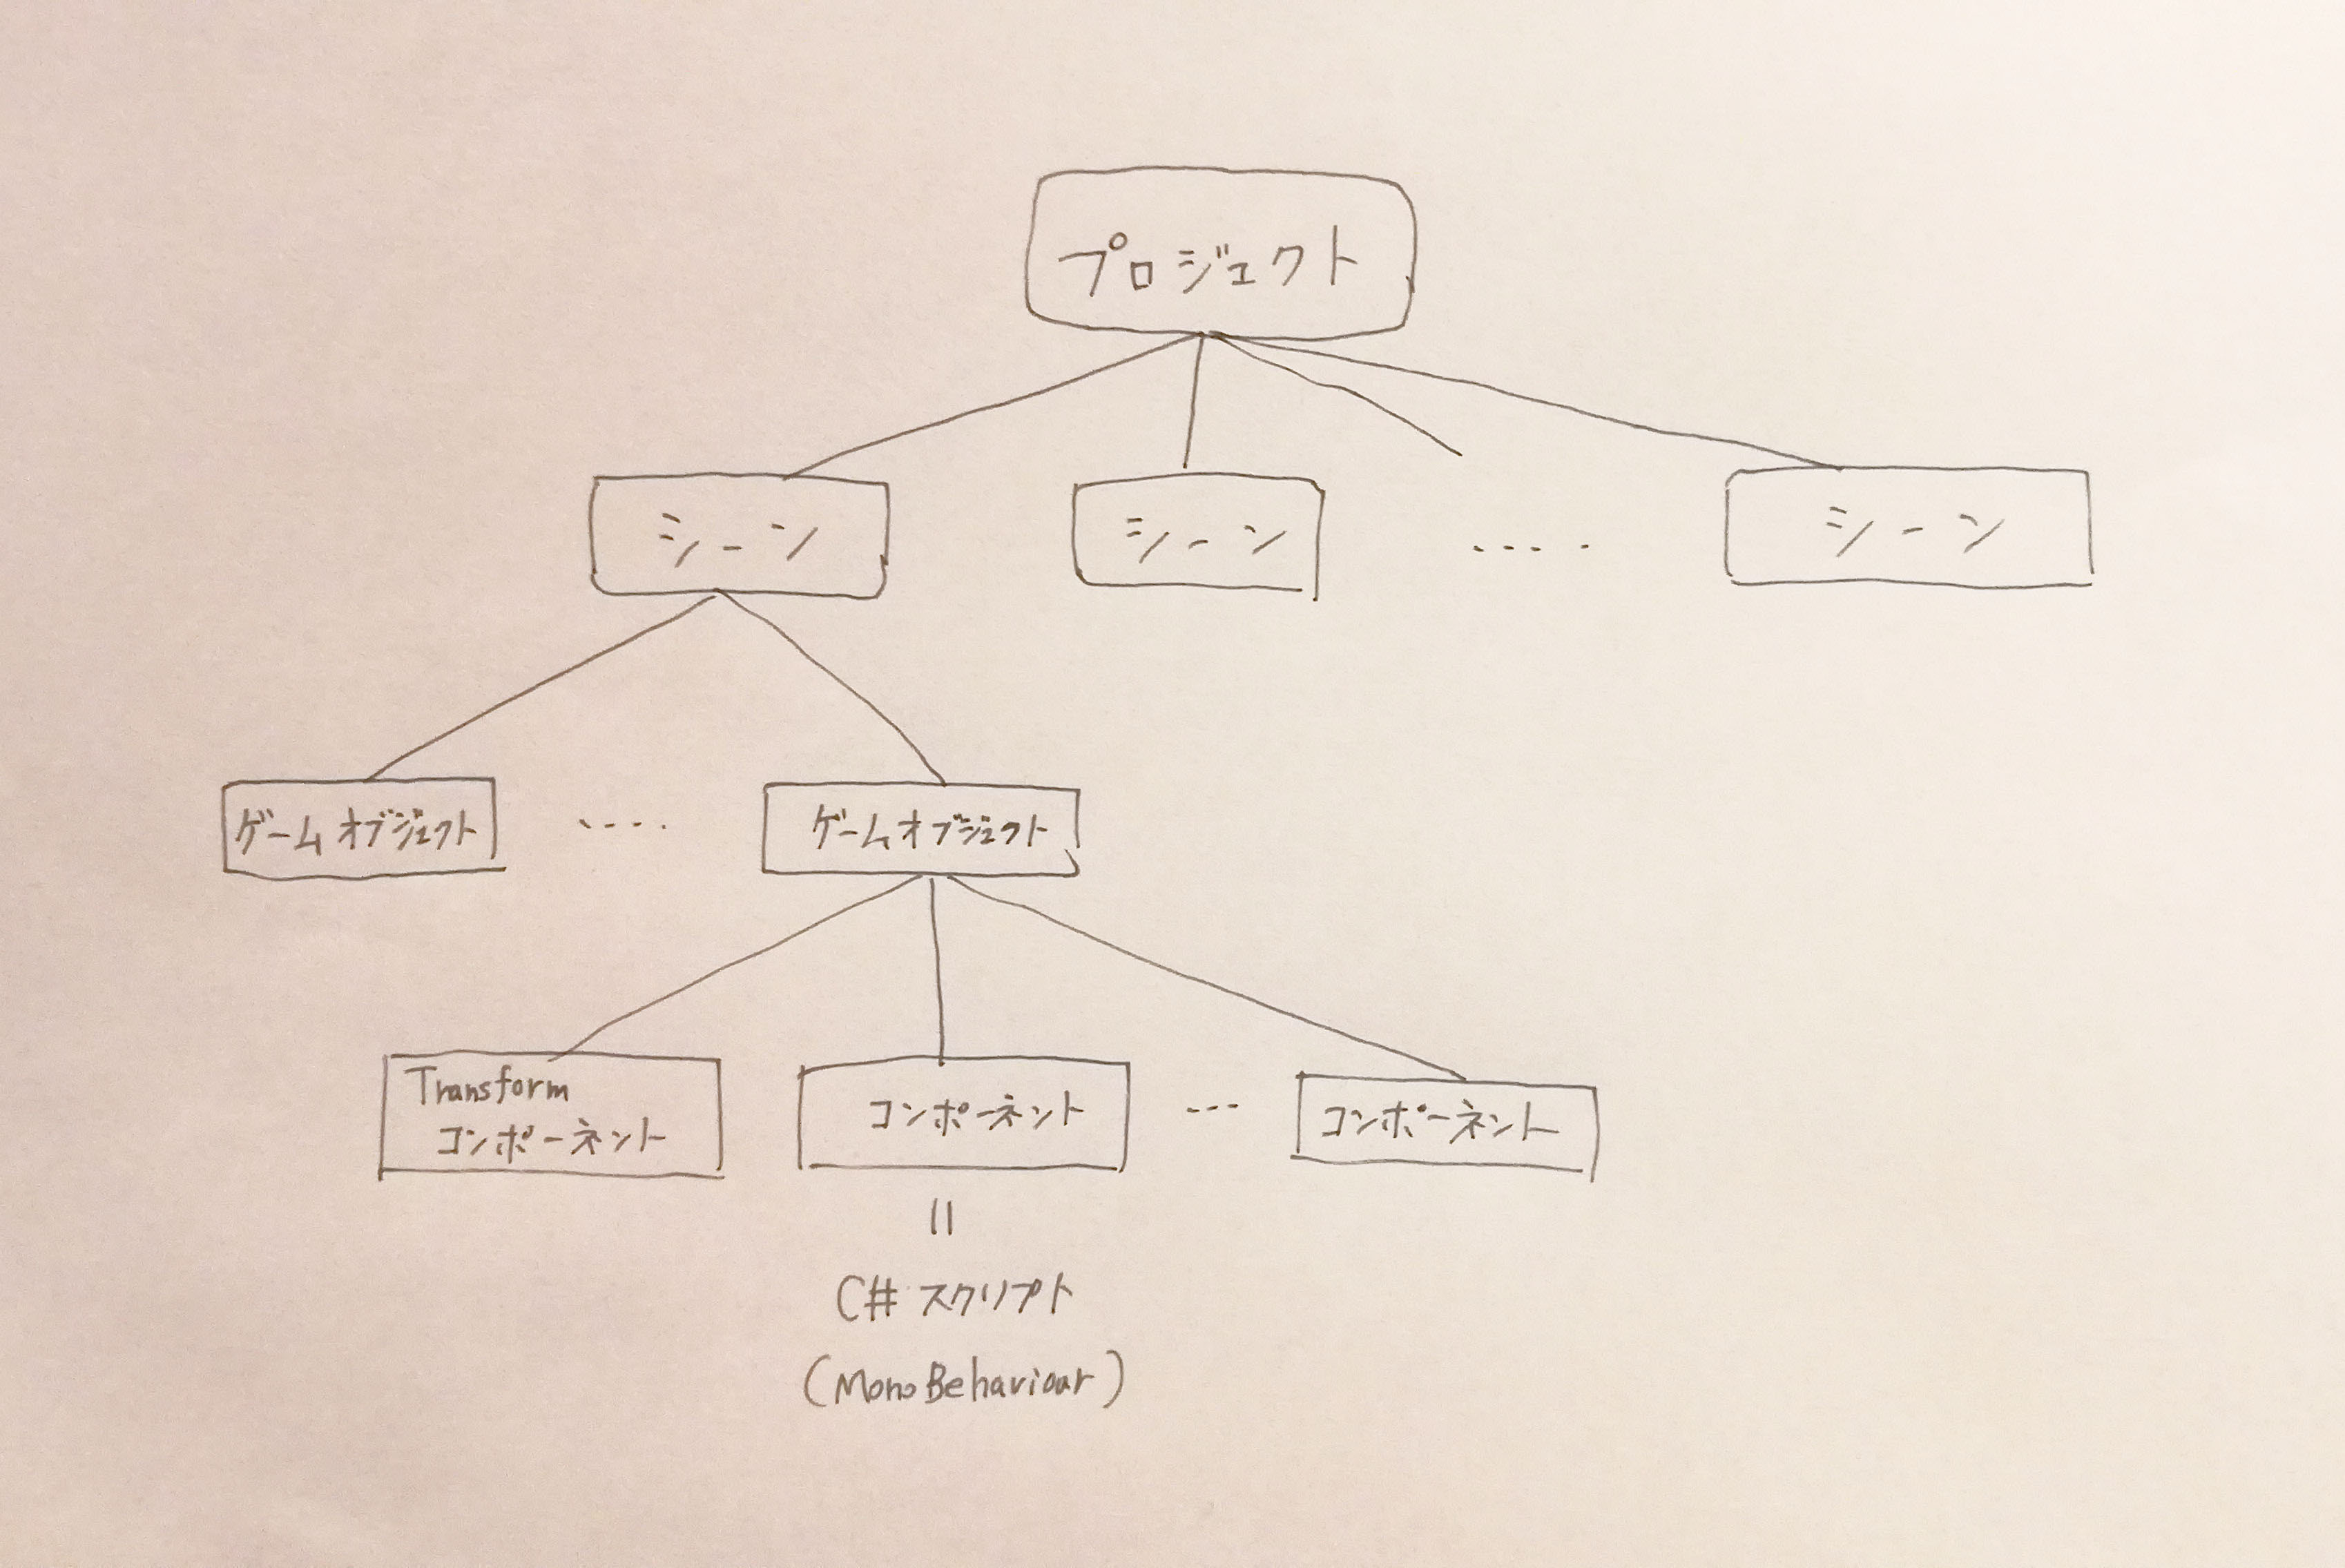 プロジェクト
シーン
シーン
....
シーン
ゲームオブジェクト
....
ゲームオブジェクト
Transform
コンポーネント
コンポーネント
...
コンポーネント
=
C# スクリプト
(MonoBehaviour)